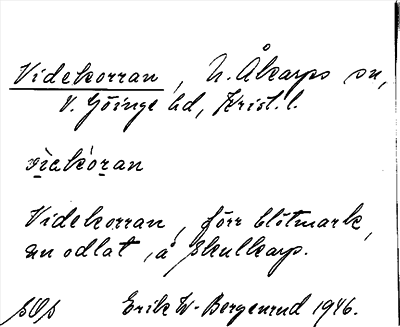 Videkorran, N. Åkarps sn,
V. Göinge hd, Krist. l.
Videkorran, förr blötmark,
nu odlat, å Skulkarp.
Erik W. Bergenrud 1946.